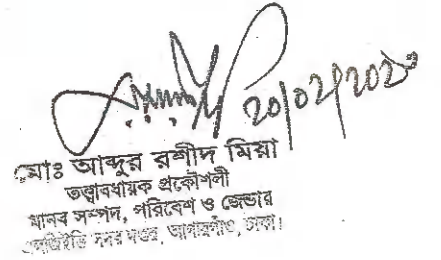 মোঃ আব্দুর রশীদ মিয়া
তত্ত্বাবধায়ক প্রকৌশলী
মানব সম্পদ, পরিবেশ ও জেন্ডার
এলজিইডি সদর দপ্তর, আগারগাঁও, ঢাকা।